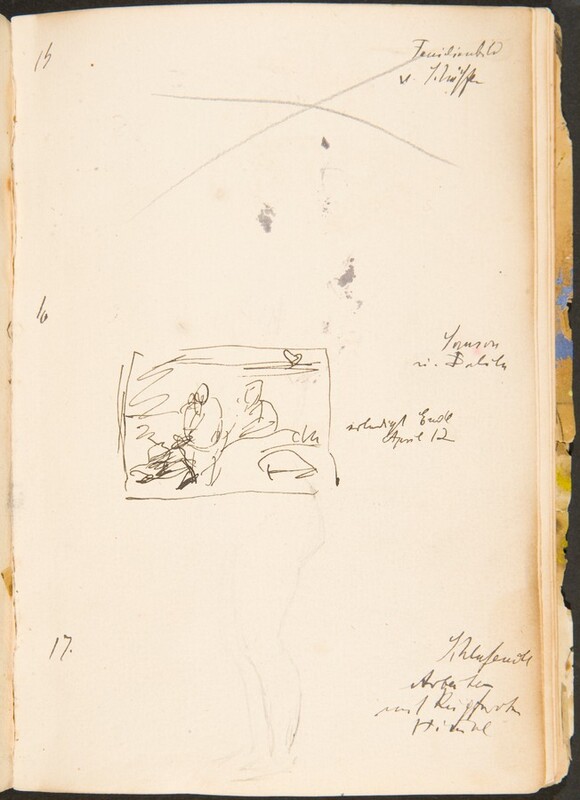 15
Familienbild
v. Schiffer
16
Samson
u. Dalila
erledigt Ende
April 12
17.
Schlafende
Arbeiter
mit